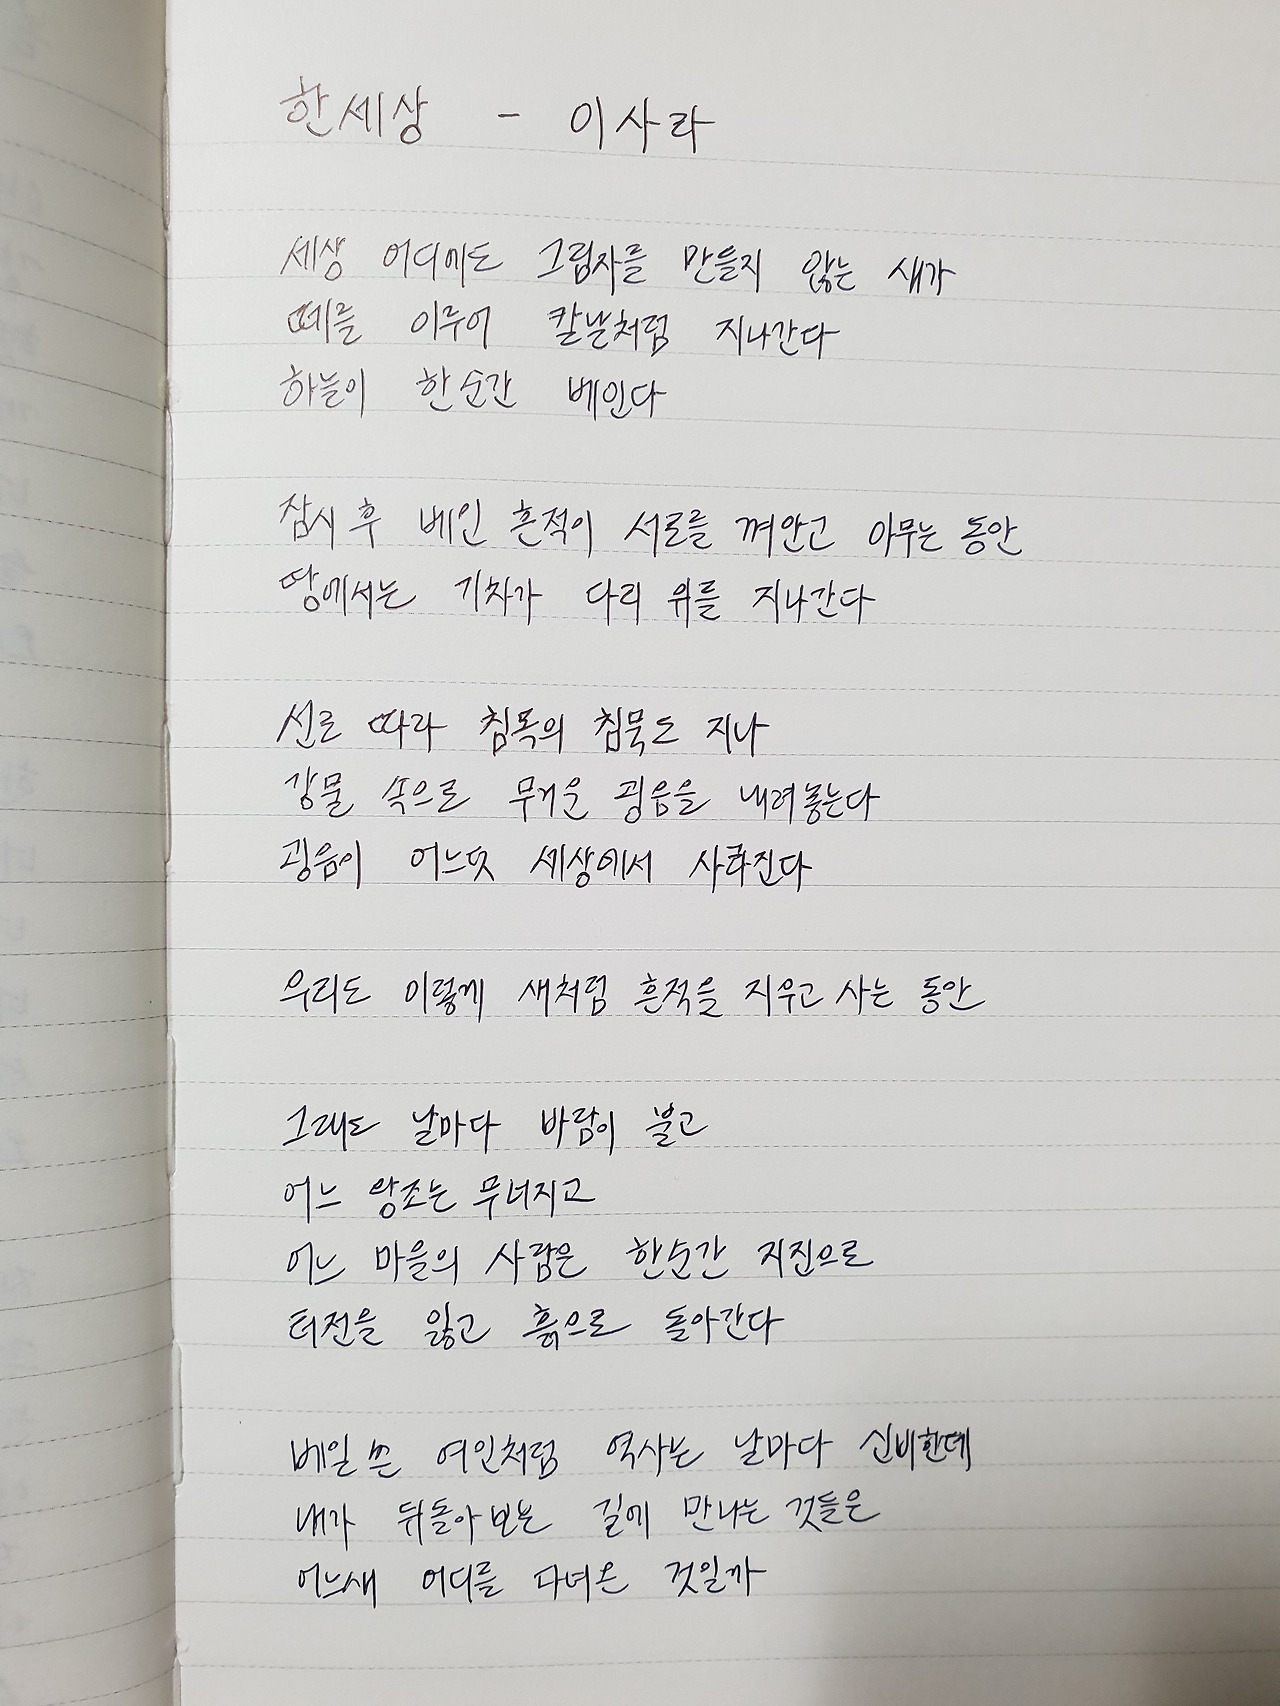 한세상 - 이사라
세상 어디에도 그림자를 만들지 않는 새가
떼를 이루어 칼날처럼 지나간다
하늘이 한순간 베인다
잠시 후 베인 흔적이 서로를 껴안고 아무는 동안
땅에서는 기차가 다리 위를 지나간다
선로 따라 침목의 침묵도 지나
강물 속으로 무거운 굉음을 내려놓는다
굉음이 어느덧 세상에서 사라진다
우리도 이렇게 새처럼 흔적을 지우고 사는 동안
그래도 날마다 바람이 불고
어느 왕조는 무너지고
어느 마을의 사람은 한순간 지진으로
터전을 잃고 흙으로 돌아간다
베일 쓴 여인처럼 역사는 날마다 신비한데
내가 뒤돌아보는 길에 만나는 것들은
어느새 어디를 다녀온 것일까